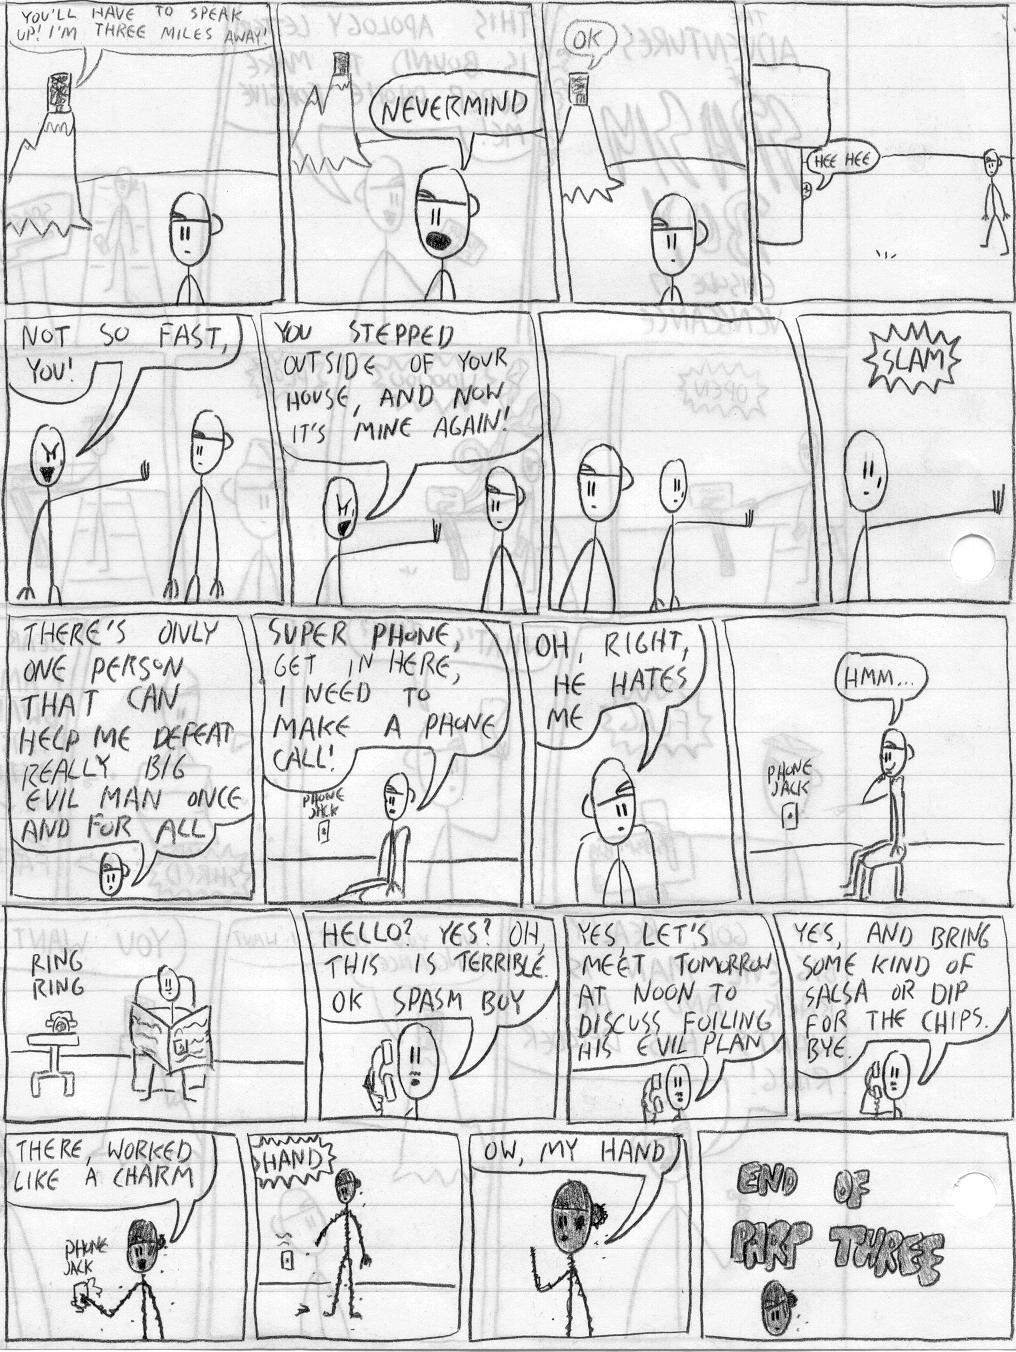 YOU'LL HAVE TO SPEAK
UP! I'M THREE MILES AWAY!
NEVERMIND
OK
HEE HEE
NOT SO FAST,
YOU!
YOU STEPPED
OUTSIDE OF YOUR
HOUSE, AND NOW
IT'S MINE AGAIN!
SLAM
THERE'S ONLY
ONE PERSON
THAT CAN
HELP ME DEFEAT
REALLY BIG
EVIL MAN ONCE
AND FOR ALL
SUPER PHONE,
GET IN HERE,
I NEED TO
MAKE A PHONE
CALL!
PHONE
JACK
OH, RIGHT,
HE HATES
ME
HMM...
PHONE
JACK
RING
RING
HELLO? YES? OH,
THIS IS TERRIBLE.
OK SPASM BOY
YES, LET'S
MEET TOMORROW
AT NOON TO
DISCUSS FOILING
HIS EVIL PLAN
YES, AND BRING
SOME KIND OF
SALSA OR DIP
FOR THE CHIPS.
BYE.
THERE, WORKED
LIKE A CHARM
PHONE
JACK
HAND
OW, MY HAND
END OF
PART THREE